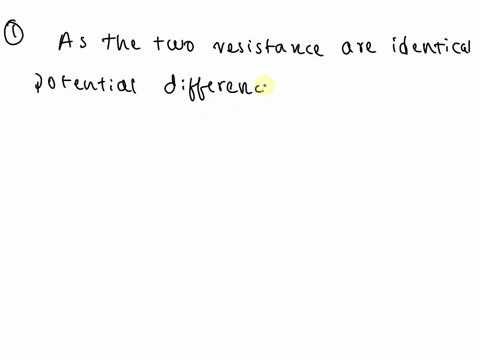 ① As the two resistance are identical
potential differenc